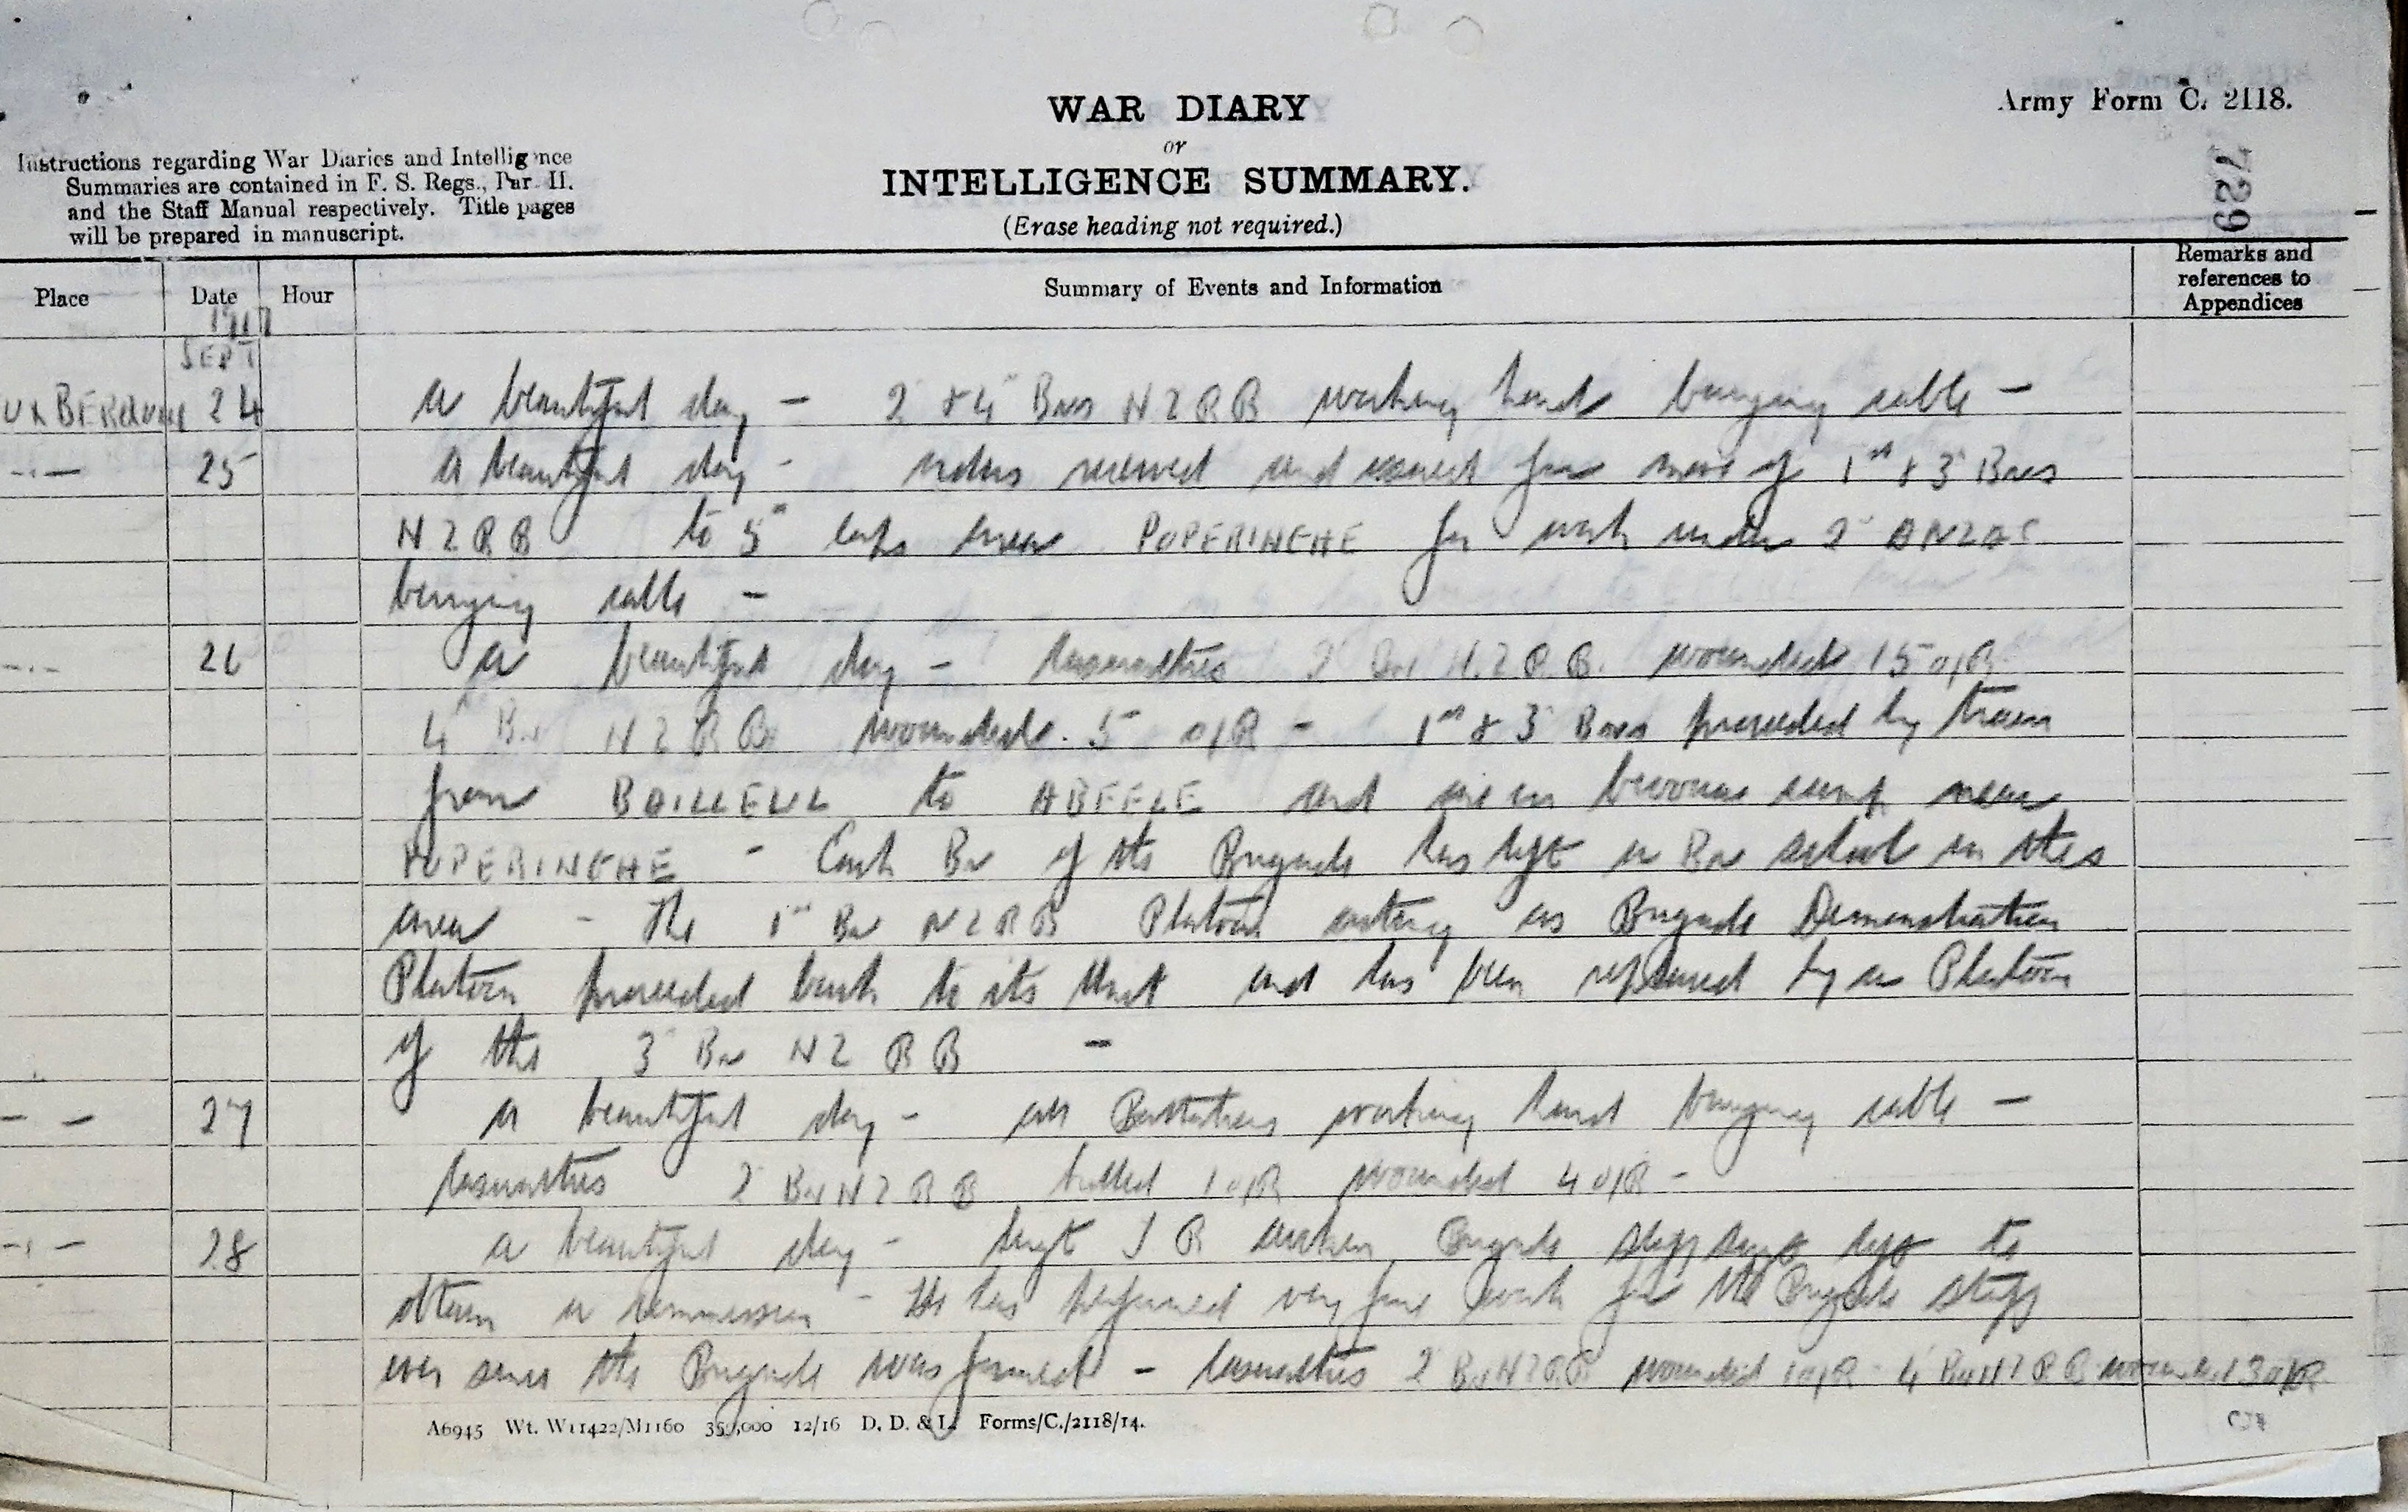 Army Form C. 2118.
WAR DIARY
or
INTELLIGENCE SUMMARY.
(Erase heading not required.)
Instructions regarding War Diaries and Intelligence
Summaries are contained in F. S. Regs., Part II.
and the Staff Manual respectively. Title pages
will be prepared in manuscript.
729
Place Date Hour Summary of Events and Information Remarks and references to Appendices
1917
SEPT
24 A beautiful day - 2 & 4 Bns NZRB working hard burying cable -
25 A beautiful day - orders received and issued for move of 1st & 3 Bns
NZRB to 5th Corps area POPERINGHE for work under 2 ANZAC
burying cable -
26 A beautiful day - Casualties 2 Bn N.Z.R.B. wounded 15 O/R
4 Bn NZRB wounded 5 O/R - 1st & 3 Bns proceeded by train
from BAILLEUL to ABEELE and are in bivouac camp near
POPERINGHE - Each Bn of the Brigade has left a Bn school in this
area - The 1st Bn NZRB Platoon acting as Brigade Demonstration
Platoon proceeded back to its Unit and has been replaced by a Platoon
of the 3 Bn NZRB -
27 A beautiful day - all Battalions working hard burying cable -
Casualties 2 Bn NZRB killed 1 O/R wounded 4 O/R -
28 A beautiful day - Sergt J R Brigade Staff Sergt left to
obtain a commission - He has performed very fine work for the Brigade Staff
ever since the Brigade was formed - Casualties 2 Bn NZRB wounded 1 O/R - 4 Bn NZRB wounded 3 O/R
A6945 Wt. W11422/M1160 350,000 12/16 D. D. & L. Forms/C./2118/14.